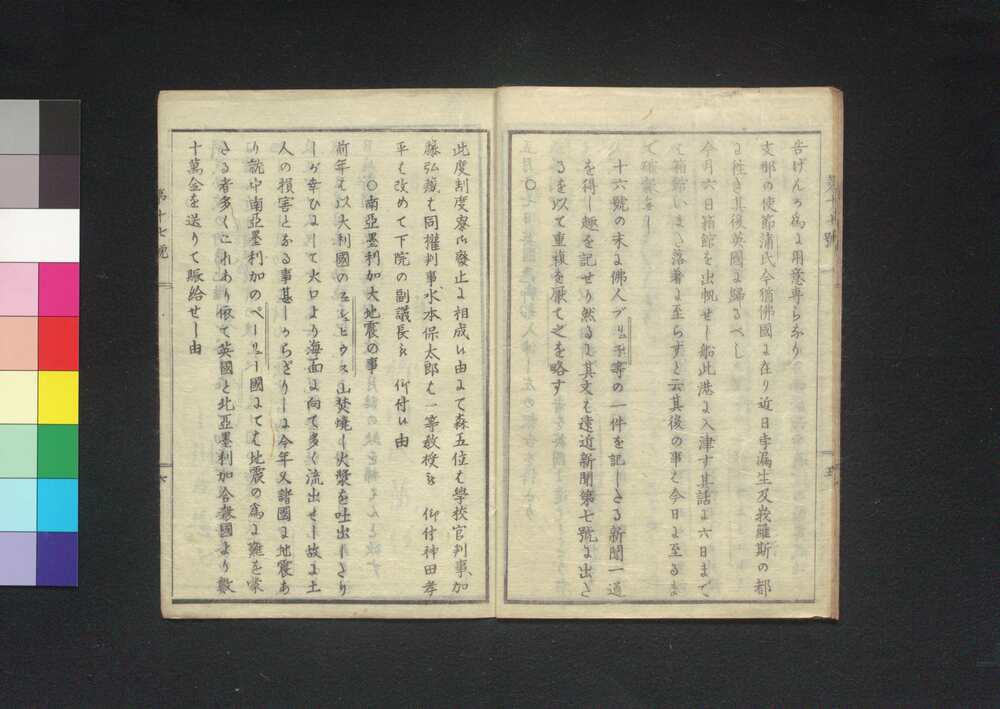 告げんが爲よ用意専らなり
支那の使節蒲氏今猶佛國よ在り近日孛漏生及峩羅斯の都
よ往き其後英國よ歸るべし
今月六日箱館を出帆せし船此港よ入津す其話よ六日まで
又箱館いまだ落着よ至らずと云其後の事も今日よ至るま
で確報なし
十六號の末よ佛人ブリュ子等の一件を記したる新聞一通
を得し趣を記せり然るよ其文も遠近新聞第七號よ出さ
るを以て重複を厭て之を略す
此度制度寮御廢止よ相成い由よて森五位も學校官判事加
藤弘藏も同權判事水本保太郎も一等教授被仰付神田孝
平も改めて下院の副議長被仰付い由
〇南亞墨利加大地震の事
前年も以太利國の山焚燒し火漿を吐出したり
しが幸ひよして火口より海面よ向て多く流出せし故よ土
人の損害となる事甚しからざりしよ今年又諸國よ地震あ
り就中南亞墨利加のペーリュー國よても地震の爲よ難を蒙
さる者多くこれあり依て英國と北亞墨利加合衆國より數
十萬金を送りて賑給せし由
第十七號
六